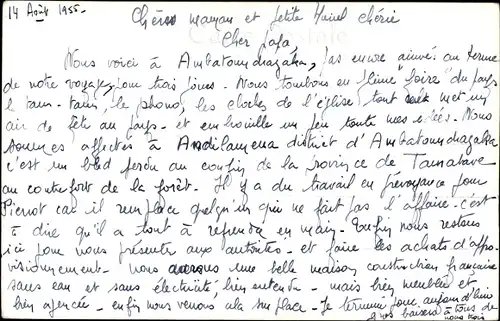 14 Août 1955-
Chère maman et petite Muriel chérie
Cher Papa
Nous voici à Ambatondrazaka, pas encore arrivés au terme
de notre voyage, pour trois jours. Nous tombons en pleine "foire" du pays
le tam-tam, le phono, les cloches de l'église, tout met un
air de fête au pays - et embrouille un peu toutes mes idées. Nous
sommes affectés à Andilamena district d'Ambatondrazaka
c'est un bled perdu au confin de la province de Tamatave
au contrefort de la forêt. Il y a du travail en prévoyance pour
Pierrot car il remplace quelqu'un qui ne fait pas l'affaire - c'est
à dire qu'il a tout à reprendre en main. Enfin nous restons
ici pour nous présenter aux autorités - et faire les achats d'appro-
visionnement - nous aurons une belle maison construction française
sans eau et sans électricité, bien entendu - mais bien meublée et
bien agencée - enfin nous verrons à la sur place. Je termine pour aujourd'hui
bons baisers à tous de
nous trois